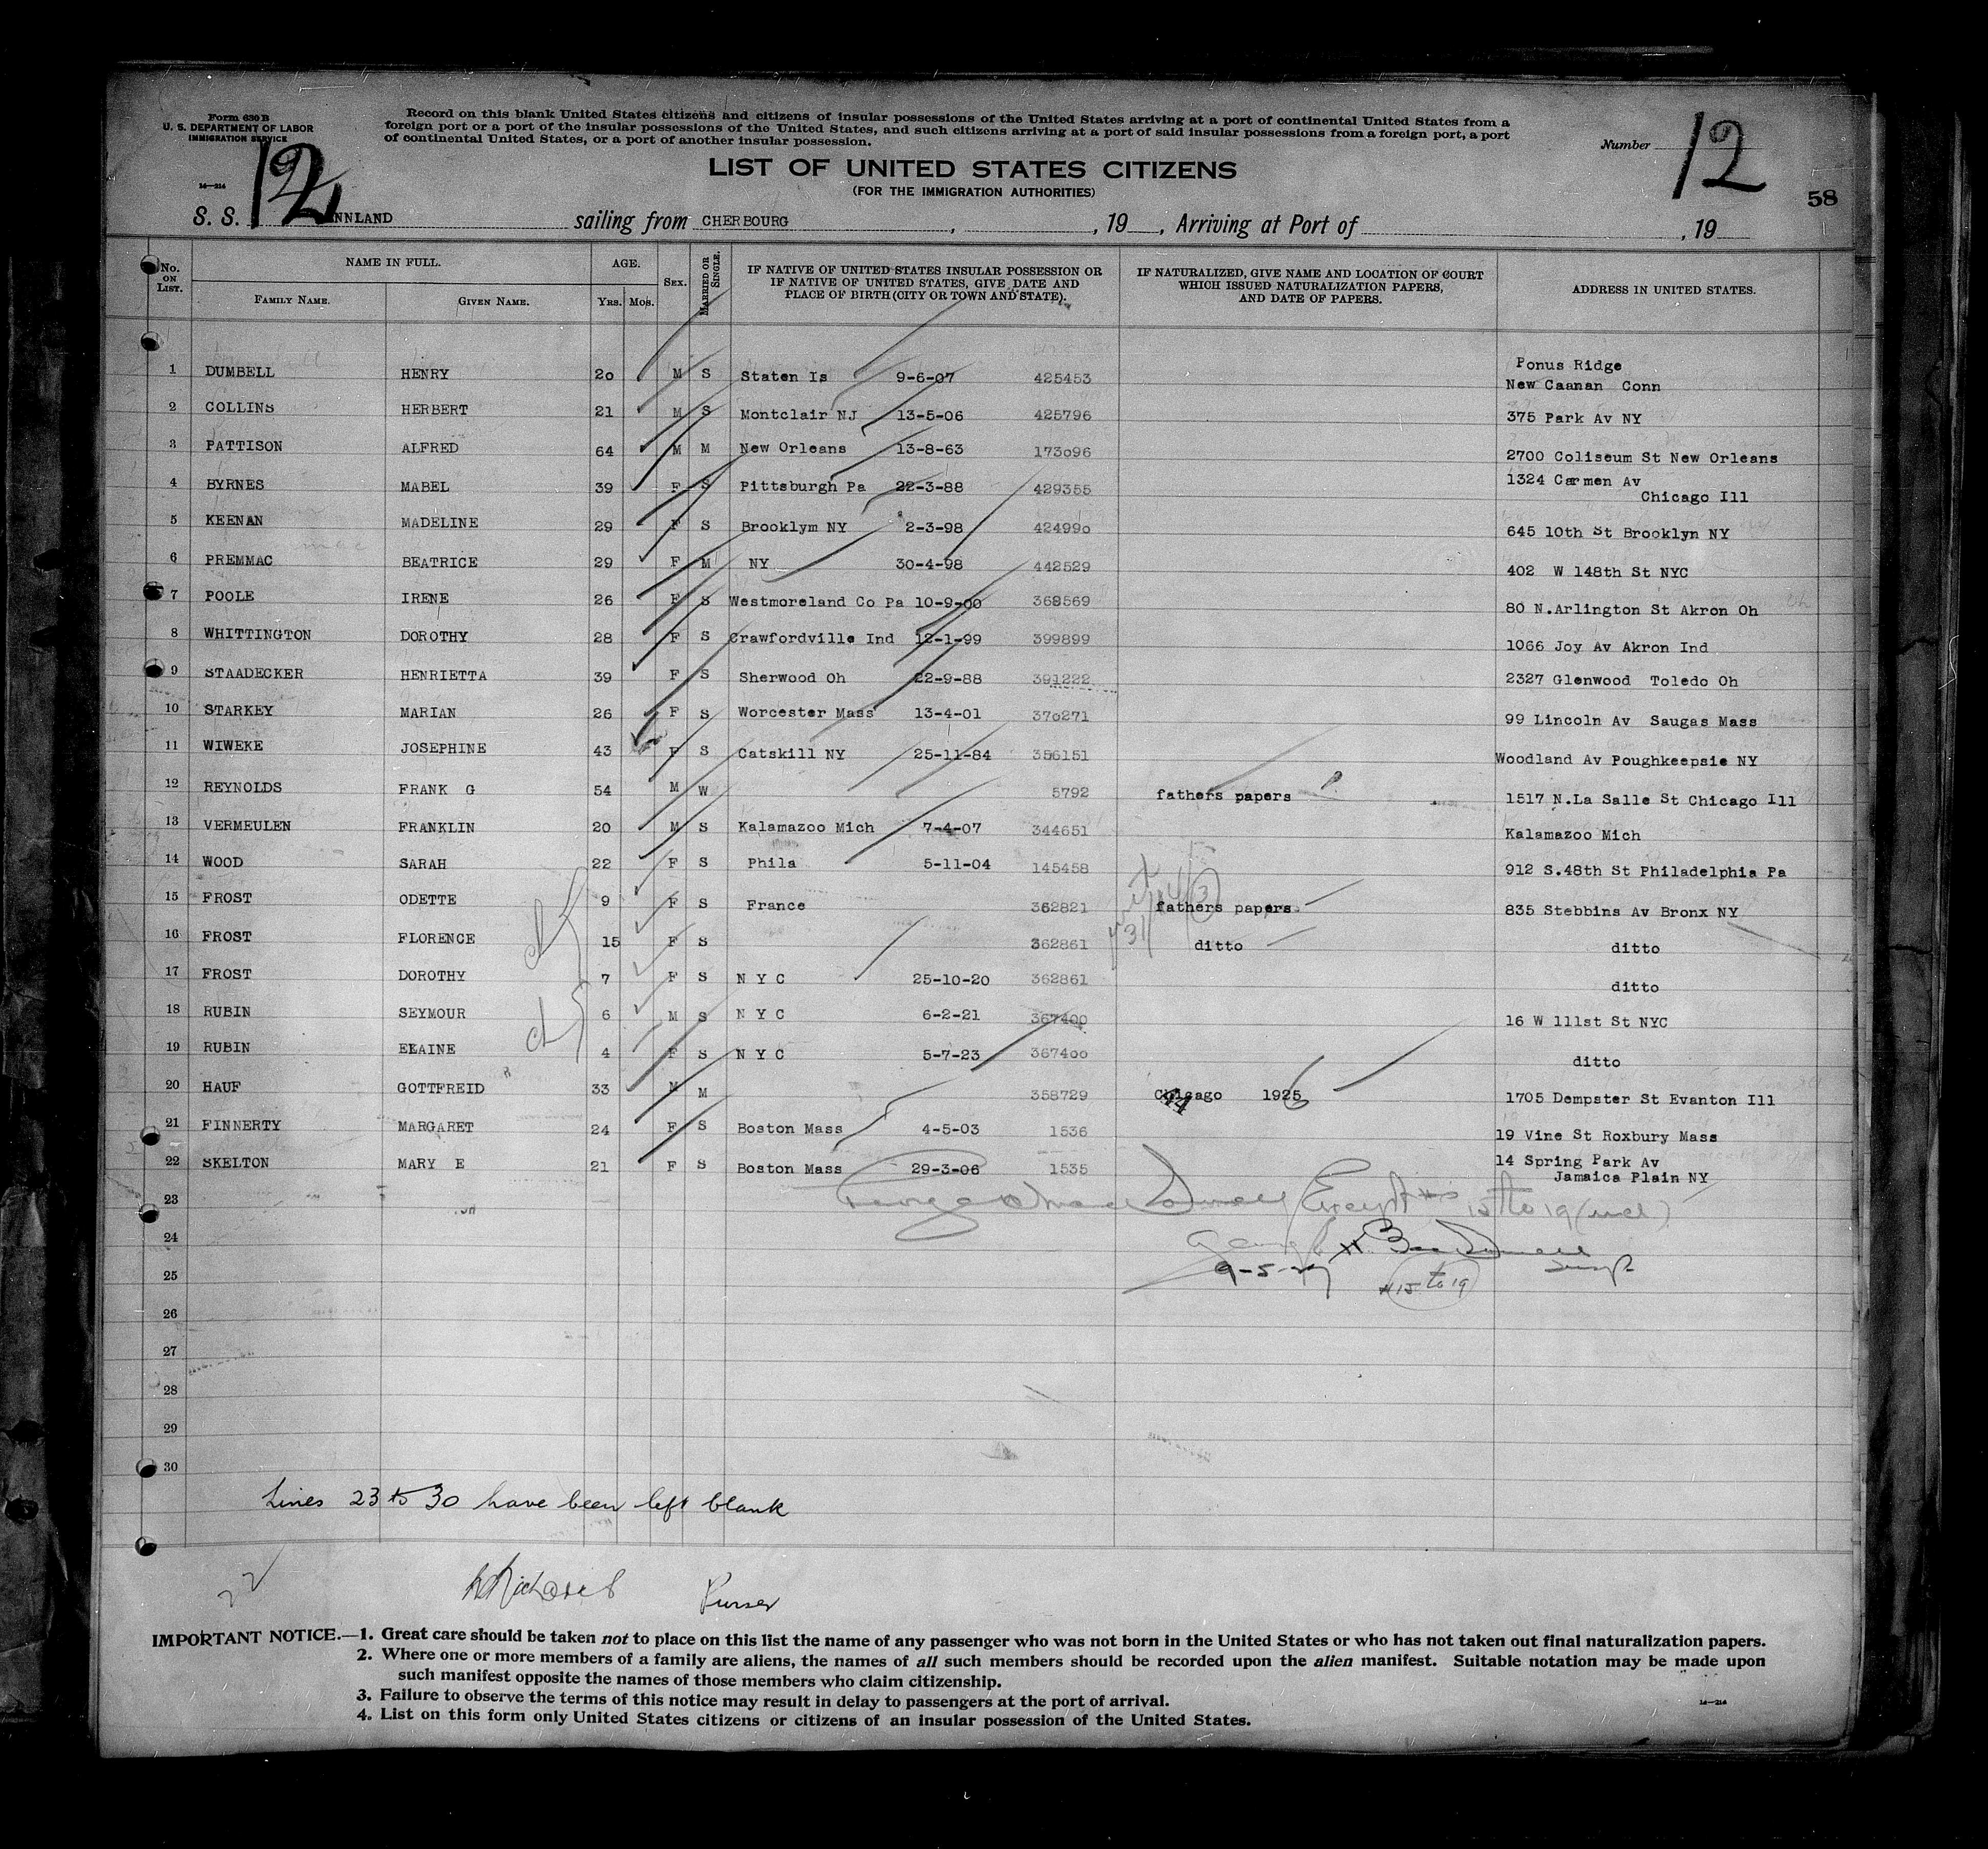 Form 630 B
U. S. DEPARTMENT OF LABOR
IMMIGRATION SERVICE
14—214
Record on this blank United States citizens and citizens of insular possessions of the United States arriving at a port of continental United States from a
foreign port or a port of the insular possessions of the United States, and such citizens arriving at a port of said insular possessions from a foreign port, a port
of continental United States, or a port of another insular possession.
Number 12
58
LIST OF UNITED STATES CITIZENS
(FOR THE IMMIGRATION AUTHORITIES)
12
S. S. NNLAND sailing from CHERBOURG , , 19 , Arriving at Port of , 19
No. ON LIST. NAME IN FULL. AGE. SEX. MARRIED OR SINGLE. IF NATIVE OF UNITED STATES INSULAR POSSESSION OR IF NATIVE OF UNITED STATES, GIVE DATE AND PLACE OF BIRTH (CITY OR TOWN AND STATE). IF NATURALIZED, GIVE NAME AND LOCATION OF COURT WHICH ISSUED NATURALIZATION PAPERS, AND DATE OF PAPERS. ADDRESS IN UNITED STATES.
FAMILY NAME. GIVEN NAME. YRS. MOS.
1 DUMBELL HENRY 20 M S Staten Is 9-6-07 425453 Ponus Ridge
New Caanan Conn
2 COLLINS HERBERT 21 M S Montclair NJ 13-5-06 425796 375 Park Av NY
3 PATTISON ALFRED 64 M M New Orleans 13-8-63 173096 2700 Coliseum St New Orleans
4 BYRNES MABEL 39 F S Pittsburgh Pa 22-3-88 429355 1324 Carmen Av
Chicago Ill
5 KEENAN MADELINE 29 F S Brooklym NY 2-3-98 424990 645 10th St Brooklyn NY
6 PREMMAC BEATRICE 29 F M NY 30-4-98 442529 402 W 148th St NYC
7 POOLE IRENE 26 F S Westmoreland Co Pa 10-9-00 368569 80 N.Arlington St Akron Oh
8 WHITTINGTON DOROTHY 28 F S Crawfordville Ind 12-1-99 399899 1066 Joy Av Akron Ind
9 STAADECKER HENRIETTA 39 F S Sherwood Oh 22-9-88 391222 2327 Glenwood Toledo Oh
10 STARKEY MARIAN 26 F S Worcester Mass 13-4-01 370271 99 Lincoln Av Saugas Mass
11 WIWEKE JOSEPHINE 43 F S Catskill NY 25-11-84 356151 Woodland Av Poughkeepsie NY
12 REYNOLDS FRANK G 54 M W 5792 fathers papers ? 1517 N.La Salle St Chicago Ill
13 VERMEULEN FRANKLIN 20 M S Kalamazoo Mich 7-4-07 344651 Kalamazoo Mich
14 WOOD SARAH 22 F S Phila 5-11-04 145458 912 S.48th St Philadelphia Pa
15 FROST ODETTE 9 F S France 362821 fathers papers 835 Stebbins Av Bronx NY
16 FROST FLORENCE 15 F S 362861 ditto ditto
17 FROST DOROTHY 7 F S N Y C 25-10-20 362861 ditto
18 RUBIN SEYMOUR 6 M S N Y C 6-2-21 367400 16 W 111st St NYC
19 RUBIN ELAINE 4 F S N Y C 5-7-23 367400 ditto
20 HAUF GOTTFREID 33 M M 358729 Chicago 1925 1705 Dempster St Evanton Ill
21 FINNERTY MARGARET 24 F S Boston Mass 4-5-03 1536 19 Vine St Roxbury Mass
22 SKELTON MARY E 21 F S Boston Mass 29-3-06 1535 14 Spring Park Av
Jamaica Plain NY
23 Except #s 15 to 19 (incl)
24
25 9-5-27 Insp
#15 to 19
26
27
28
29
30
Lines 23 to 30 have been left blank
22
Purser
IMPORTANT NOTICE.—1. Great care should be taken not to place on this list the name of any passenger who was not born in the United States or who has not taken out final naturalization papers.
2. Where one or more members of a family are aliens, the names of all such members should be recorded upon the alien manifest. Suitable notation may be made upon
such manifest opposite the names of those members who claim citizenship.
3. Failure to observe the terms of this notice may result in delay to passengers at the port of arrival.
4. List on this form only United States citizens or citizens of an insular possession of the United States.
14—214